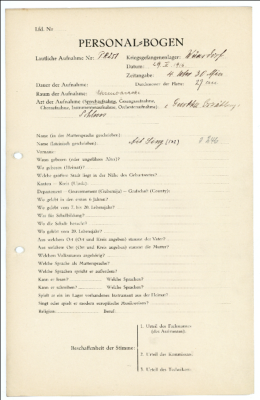 Lfd. Nr.
PERSONAL-BOGEN
Lautliche Aufnahme Nr.: PK 251 Kriegsgefangenenlager: Wünsdorf
Datum:
Zeitangabe: 4 Uhr 30 Min
Dauer der Aufnahme: Durchmesser der Platte: 27 cm
Raum der Aufnahme:
Art der Aufnahme (Sprechaufnahme, Gesangsaufnahme, Choraufnahme, Instrumentenaufnahme, Orchesteraufnahme):
Name (in der Muttersprache geschrieben):
Name (lateinisch geschrieben):
Vorname:
Wann geboren (oder ungefähres Alter)?
Wo geboren (Heimat)?
Welche größere Stadt liegt in der Nähe des Geburtsortes?
Kanton — Kreis (Ujedz):
Department — Gouvernement (Gubernija) — Grafschaft (County):
Wo gelebt in den ersten 6 Jahren?
Wo gelebt vom 7. bis 20. Lebensjahr?
Was für Schulbildung?
Wo die Schule besucht?
Wo gelebt vom 20. Lebensjahr?
Aus welchem Ort (Ort und Kreis angeben) stammt der Vater?
Aus welchem Ort (Ort und Kreis angeben) stammt die Mutter?
Welchem Volksstamm angehörig?
Welche Sprache als Muttersprache?
Welche Sprachen spricht er außerdem?
Kann er lesen? Welche Sprachen?
Kann er schreiben? Welche Sprachen?
Spielt er ein im Lager vorhandenes Instrument aus der Heimat?
Singt oder spielt er modern europäische Musikweisen?
Religion: Beruf:
Beschaffenheit der Stimme:
1. Urteil des Fachmannes (des Assistenten):
2. Urteil des Kommissars:
3. Urteil des Fachmannes: